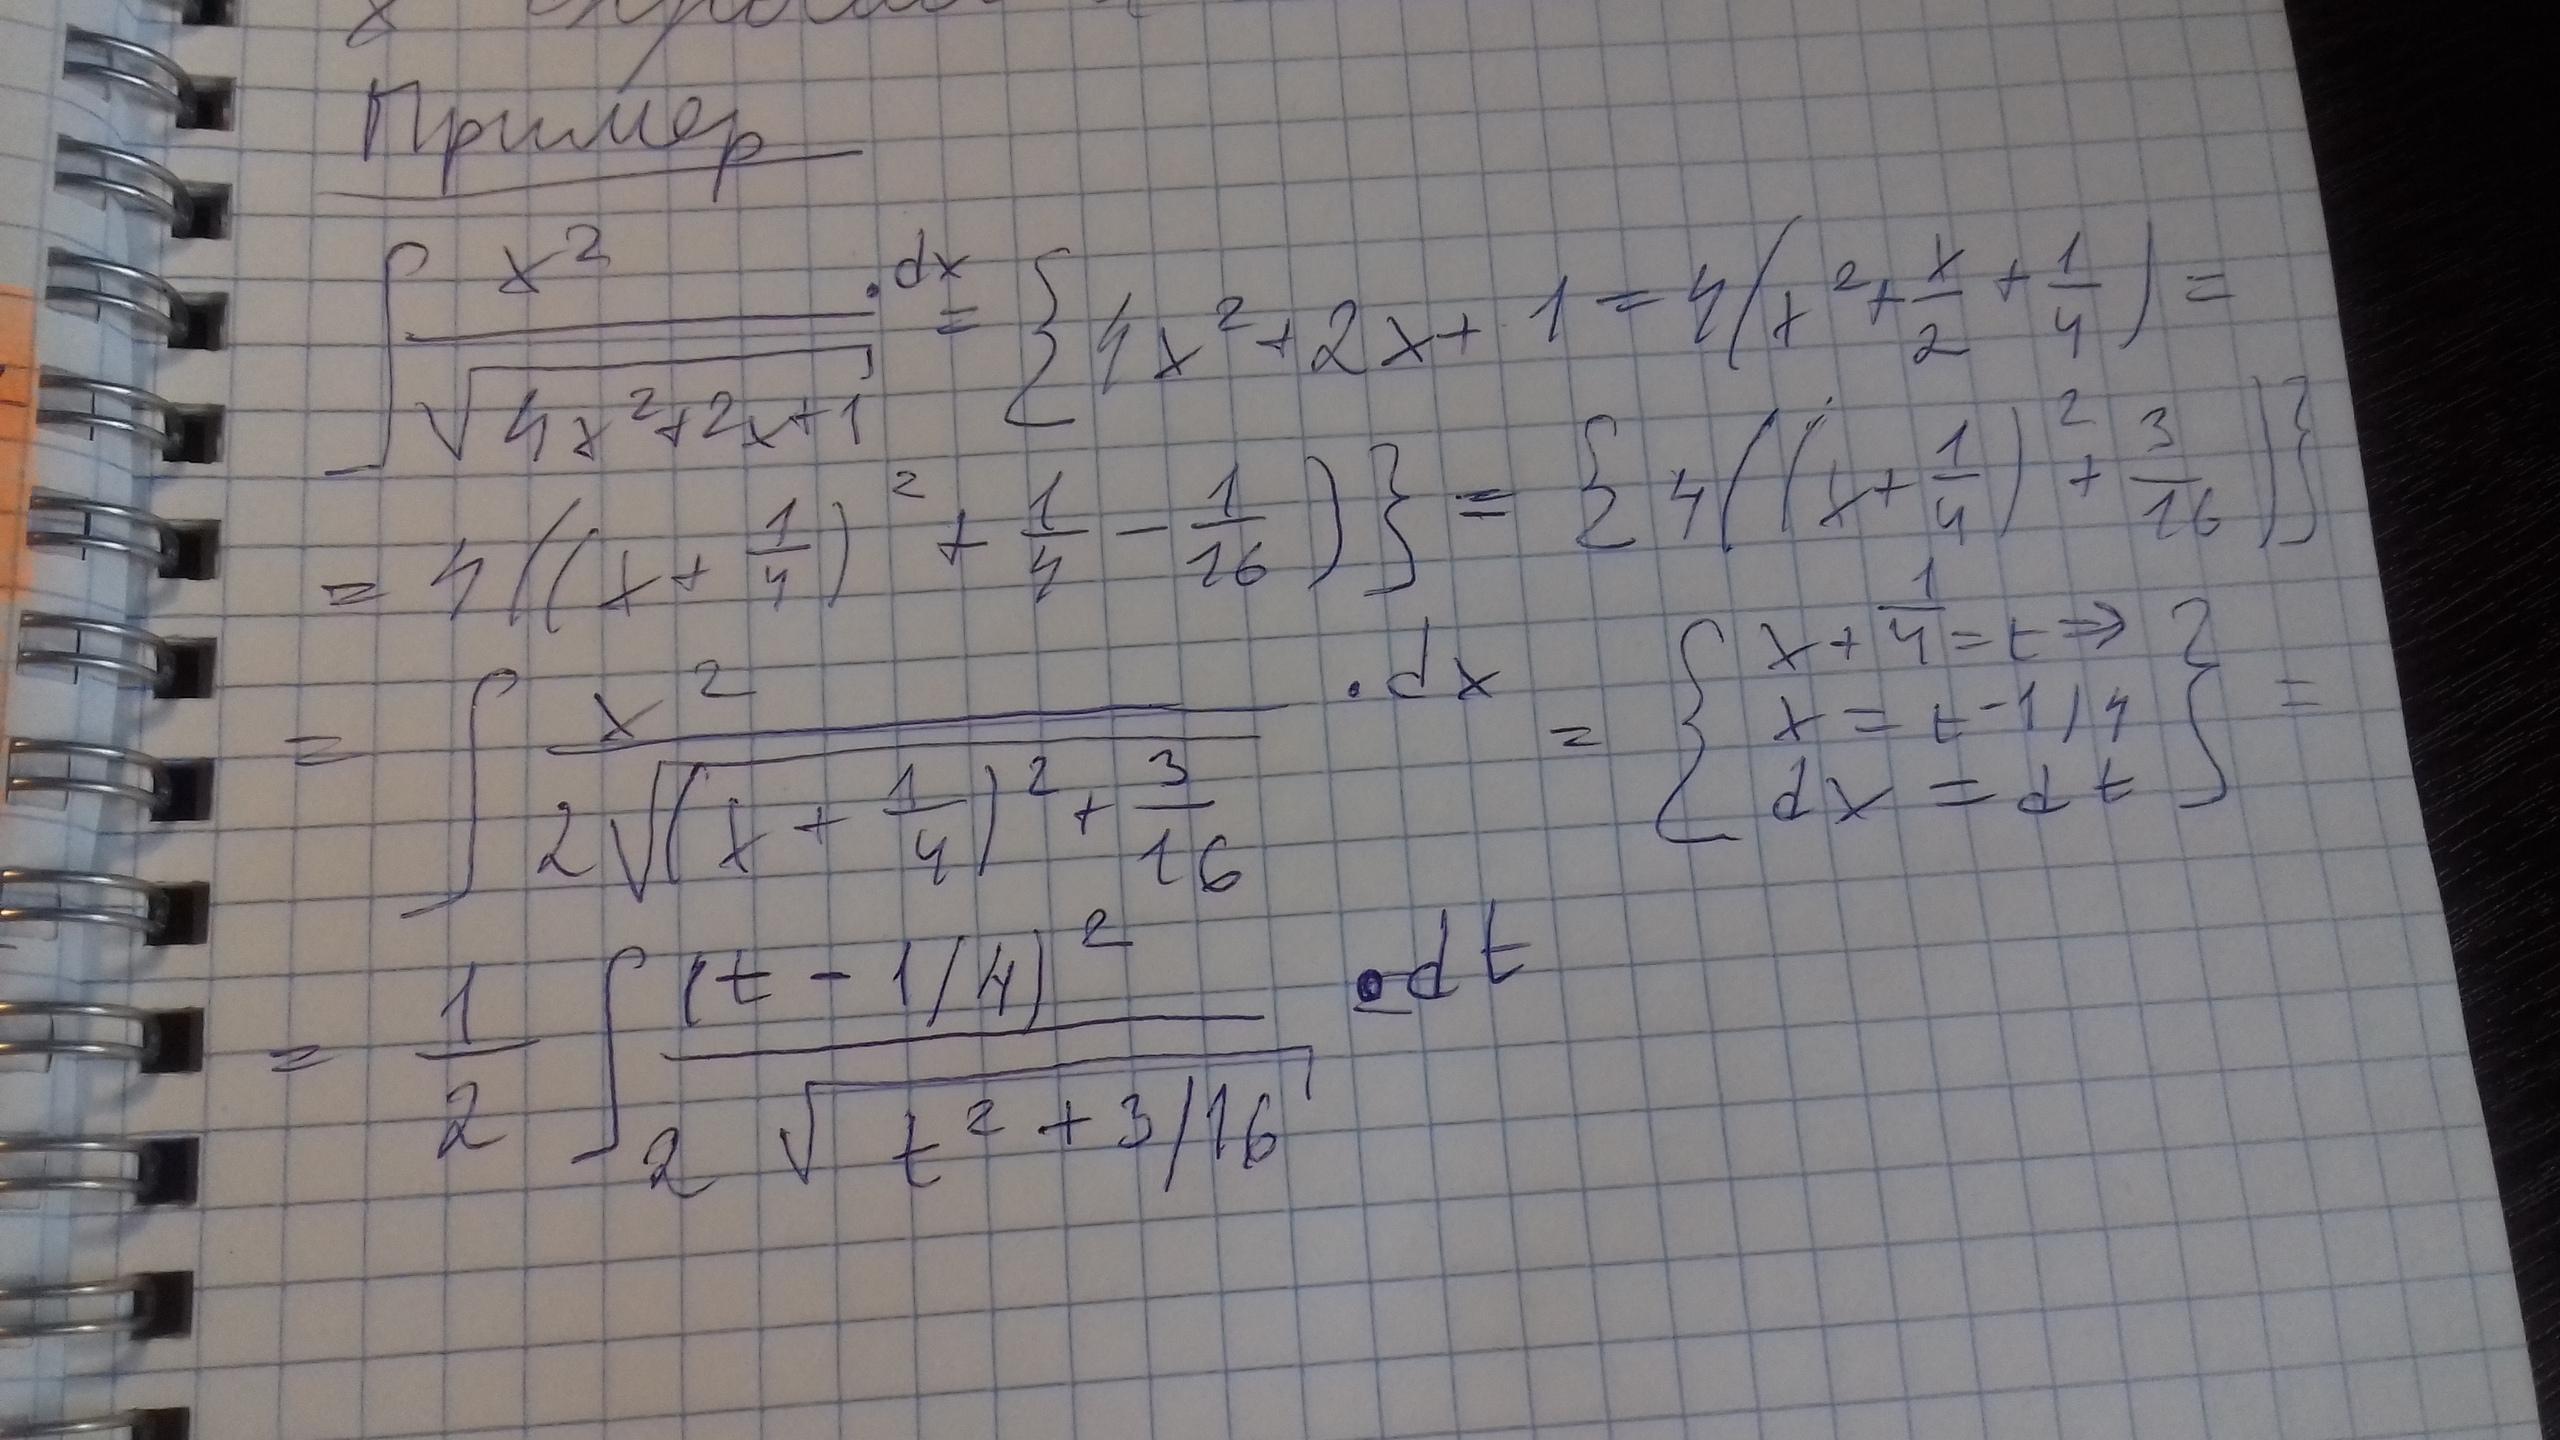 Пример
∫ x² / √(4x²+2x+1) · dx = { 4x²+2x+1 = 4(x² + x/2 + 1/4) =
= 4((x + 1/4)² + 1/4 − 1/16) } = { 4((x + 1/4)² + 3/16) }
= ∫ x² / 2√((x + 1/4)² + 3/16) · dx = { x + 1/4 = t ⇒ x = t − 1/4 dx = dt } =
= 1/2 ∫ (t − 1/4)² / 2 √(t² + 3/16) · dt